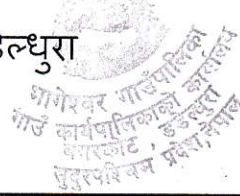 डेल्धुरा
भागेश्वर गाउँपालिका
गाउँ कार्यपालिकाको कार्यालय
बगरकोट, डडेल्धुरा
सुदुरपश्चिम प्रदेश, नेपाल